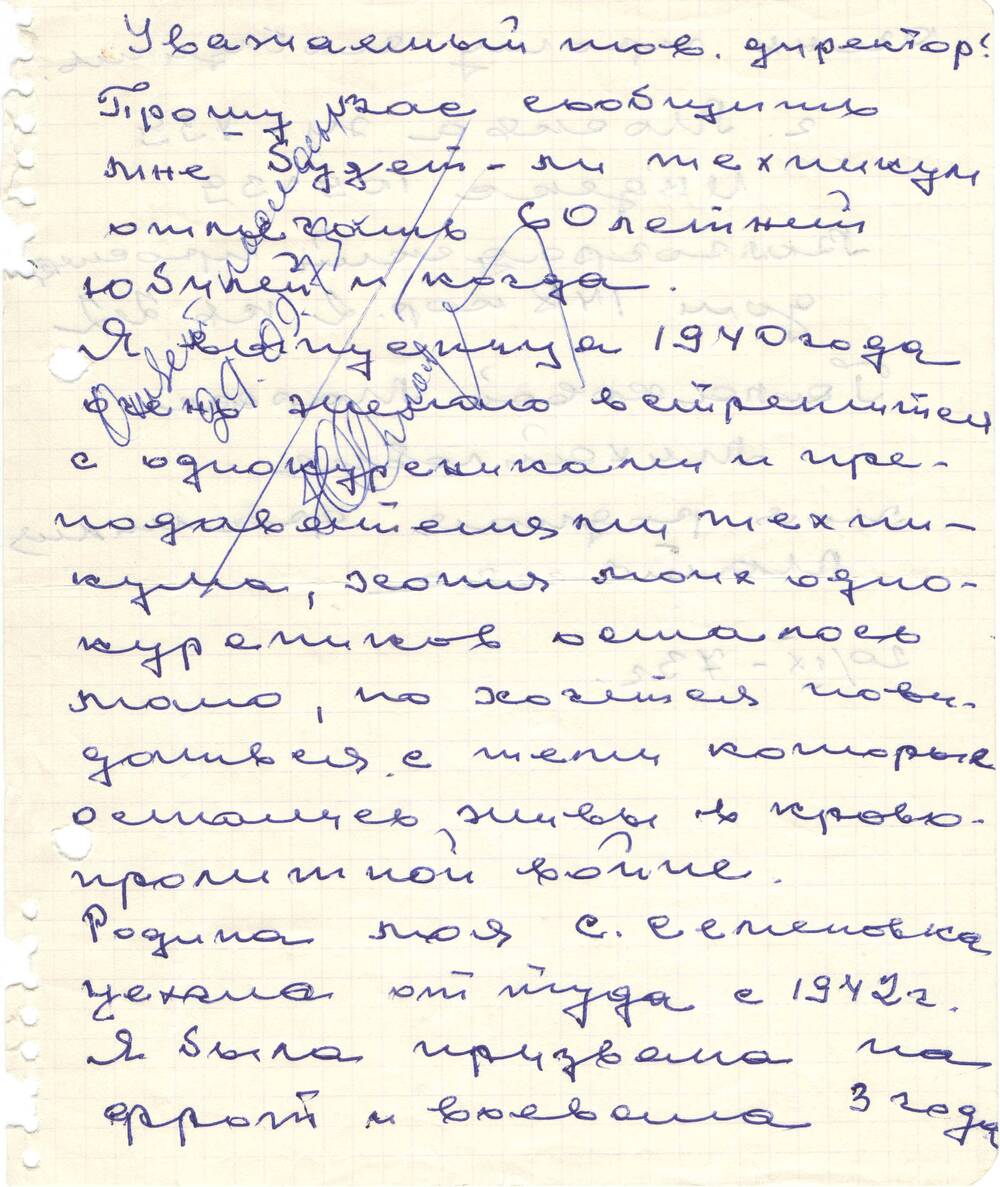 Уважаемый тов. директор!
Прошу вас сообщить
мне будет-ли техникум
отмечать 60 летний
юбилей и когда.
Я выпускница 1940 года
очень желаю встретится
с однокурсниками и пре-
подавателями техни-
кума, хотя моих одно-
курсников осталось
мало, но хочется пови-
даться с теми которые
остались живы в крово-
пролитной войне.
Родина моя с. Семеновка
уехала от туда с 1942 г.
Я была призвана на
фронт и воевала 3 года